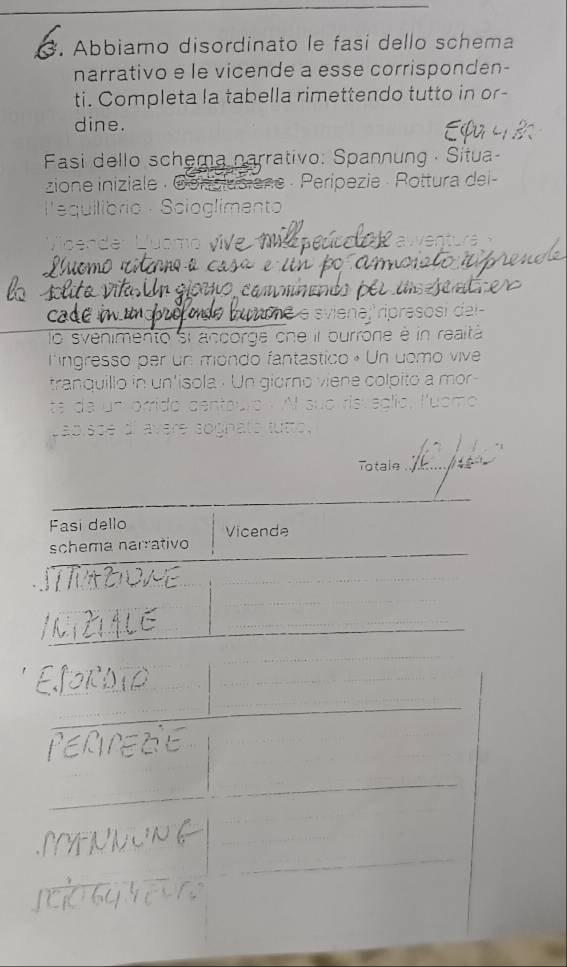 6. Abbiamo disordinato le fasi dello schema
narrativo e le vicende a esse corrisponden-
ti. Completa la tabella rimettendo tutto in or-
dine.
Fasi dello schema narrativo: Spannung · Situa-
zione iniziale · Peripezie · Rottura del-
l'equilibrio · Scioglimento
Vicende: L'uomo vive mille pericolose avventure ·
L'uomo ritorna a casa e un po' annoiato riprende
la solita vita. Un giorno, camminando per un sentiero
cade in un profondo burrone e sviene; ripresosi dal-
lo svenimento si accorge che il burrone è in realtà
l'ingresso per un mondo fantastico · Un uomo vive
tranquillo in un'isola · Un giorno viene colpito a mor-
te da un orrido centauro · Al suo risveglio, l'uomo
capisce di avere sognato tutto.
Totale
Fasi dello
schema narrativo
Vicende
SITUAZIONE
INIZIALE
ESORDIO
PERIPEZIE
SPANNUNG